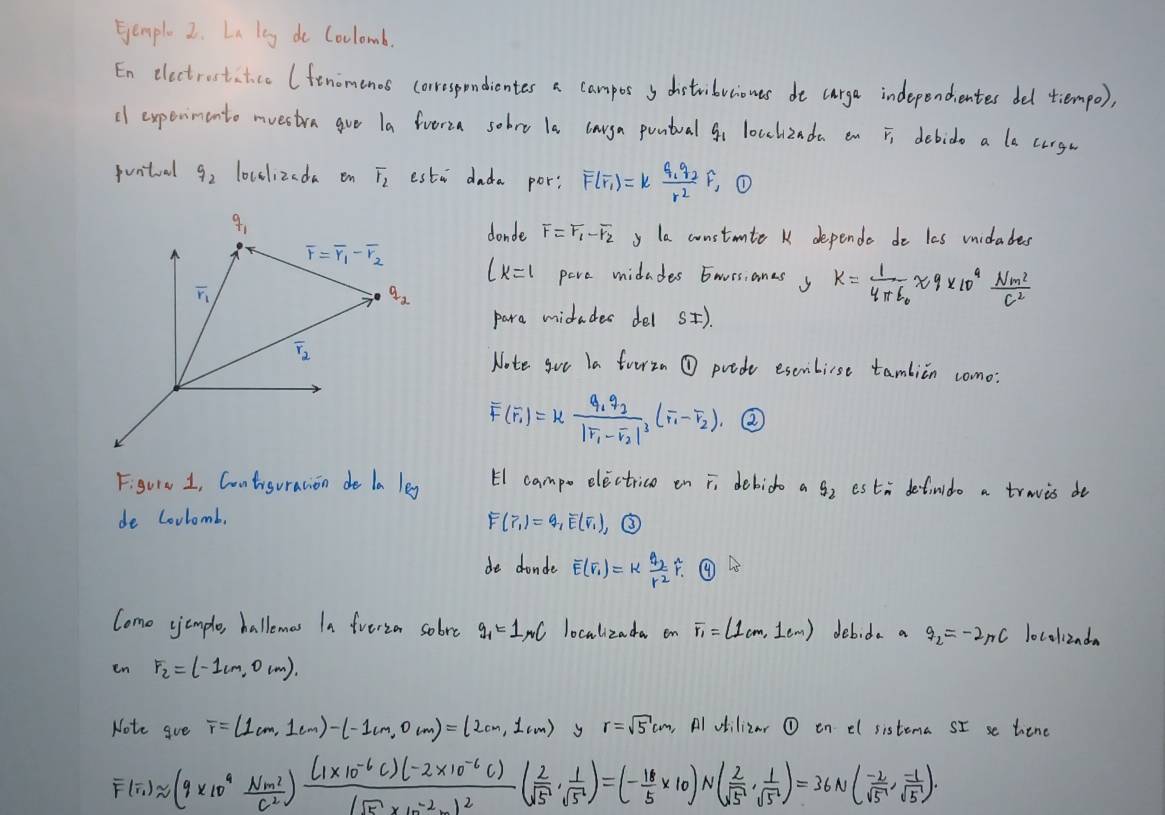 Ejemplo 2. La ley de Coulomb.
En electrostática (fenómenos correspondientes a campos y distribuciones de carga independientes del tiempo),
el experimento muestra que la fuerza sobre la carga puntual q₁ localizada en r̅₁ debido a la carga
puntual q₂ localizada en r̅₂ está dada por: F̅(r̅₁)=k q₁q₂/r² r̂, ①
q₁
r̅=r̅₁-r̅₂
r̅₁
q₂
r̅₂
donde r̅=r̅₁-r̅₂ y la constante k depende de las unidades
(k=1 para unidades Gaussianas y k=1/4πε₀≈9×10⁹ Nm²/C²
para unidades del SI).
Note que la fuerza ① puede escribirse también como:
F̅(r̅₁)=k q₁q₂/|r̅₁-r̅₂|³ (r̅₁-r̅₂). ②
Figura 1, Configuración de la ley
de Coulomb.
El campo eléctrico en r̅₁ debido a q₂ está definido a través de
F̅(r̅₁)=q₁E̅(r̅₁), ③
de donde E̅(r̅₁)=k q₂/r² r̂. ④
Como ejemplo, hallemos la fuerza sobre q₁=1μC localizada en r̅₁=(1cm, 1cm) debida a q₂=-2μC localizada
en r̅₂=(-1cm, 0cm).
Note que r̅=(1cm, 1cm)-(-1cm, 0cm)=(2cm, 1cm) y r=√5cm, Al utilizar ① en el sistema SI se tiene
F̅(r̅₁)≈(9×10⁹ Nm²/C²) (1×10⁻⁶C)(-2×10⁻⁶C)/(√5×10⁻²m)² (2/√5, 1/√5)=(-18/5×10)N(2/√5, 1/√5)=36N(-2/√5, -1/√5).